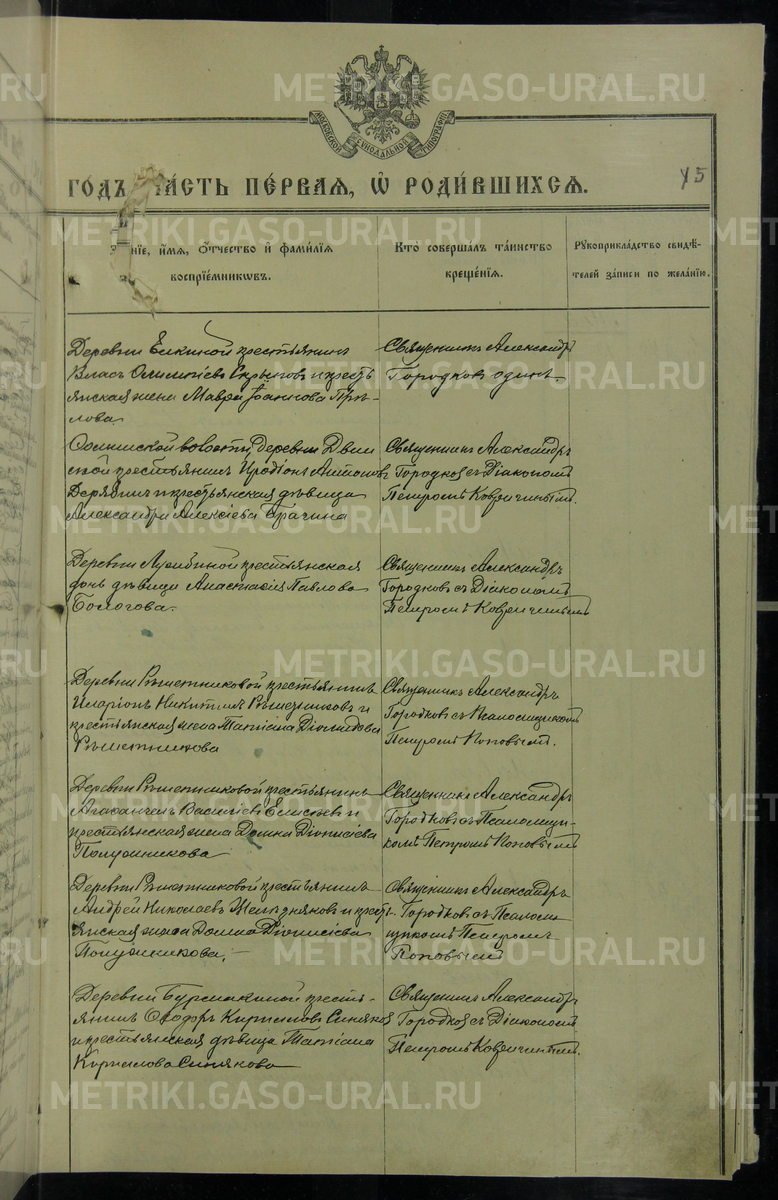 METRIKI.GASO-URAL.RU
МОСКОВСКОЙ СѴНОДАЛЬНОЙ ТИПОГРАФІИ
ГОДЪ ЧАСТЬ ПЕРВАЯ, Ѽ РОДИВШИХСЯ.
45
НІЕ, ИМЯ, ОТЧЕСТВО И ФАМИЛІЯ
ВОСПРІЕМНИКѠВЪ.
КТО СОВЕРШАЛЪ ТАИНСТВО
КРЕЩЕНІЯ.
РУКОПРИКЛАДСТВО СВИДѢ-
ТЕЛЕЙ ЗАПИСИ ПО ЖЕЛАНІЮ.
Деревни Елкиной крестьянинъ
Власъ и кресть
янская жена Мавра Іоаннова
лова
Священникъ Александръ
Городковъ одинъ.
волости, деревни
крестьянинъ Иродіонъ Антоновъ
и крестьянская дѣвица
Александра Алексіева
Священникъ Александръ
Городковъ съ Діакономъ
Петромъ
Деревни крестьянская
дочь дѣвица Анастасія Павлова
Священникъ Александръ
Городковъ съ Діакономъ
Петромъ
Деревни Рѣшетниковой крестьянинъ
Иларіонъ Никитинъ Рѣшетниковъ и
крестьянская жена Татіана Діомидова
Рѣшетникова
Священникъ Александръ
Городковъ съ Псаломщикомъ
Петромъ Поповымъ.
Деревни Рѣшетниковой крестьянинъ
Агафангелъ Василіевъ Елисѣевъ и
крестьянская жена Домна Діонисіева
Полушникова
Священникъ Александръ
Городковъ съ Псаломщи-
комъ Петромъ Поповымъ
Деревни Рѣшетниковой крестьянинъ
Андрей Николаевъ и кресть-
янская жена Домна Діонисіева
Полушникова.
Священникъ Александръ
Городковъ съ Псалом-
щикомъ Петромъ
Поповымъ
Деревни Бурмакиной кресть-
янинъ Ѳеодоръ Кириловъ Синяковъ
и крестьянская дѣвица Татіана
Кирилова Синякова
Священникъ Александръ
Городковъ съ Діакономъ
Петромъ